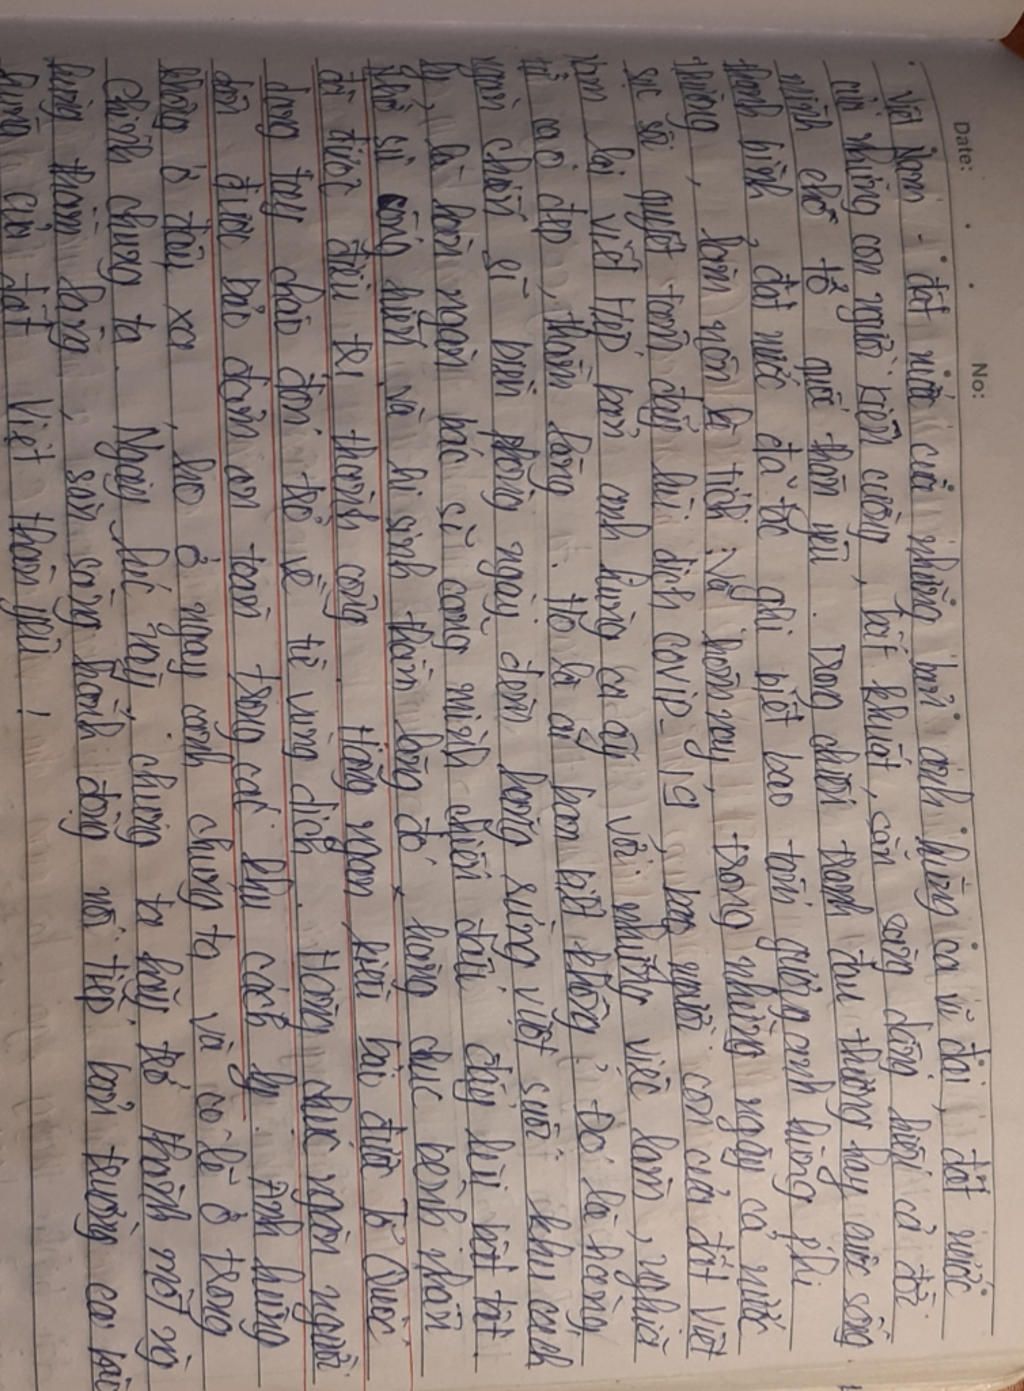 Date: No:
Việt Nam - đất nước của những bản anh hùng ca vĩ đại, đất nước
của những con người kiên cường, bất khuất, sẵn sàng dâng hiến cả đời
mình cho tổ quốc thân yêu. Trong chiến tranh đau thương hay cuộc sống
thanh bình, đất nước đã tạc ghi biết bao tấm gương anh hùng phi
thường, làm nên kì tích. Và hôm nay, trong những ngày cả nước
sục sôi quyết tâm đẩy lùi dịch COVID-19, bao người con của đất Việt
Nam lại viết tiếp bản anh hùng ca ấy với những việc làm, nghĩa
cử cao đẹp, thầm lặng. Họ là ai bạn biết không? Đó là hàng
ngàn chiến sĩ biên phòng ngày đêm hàng súng vượt suốt khu canh
là hàng ngàn bác sĩ cong mình chiến đấu đẩy lùi bệnh tật
Nhờ sự cống hiến và hi sinh thầm lặng đó, hàng chục bệnh nhân
đã được điều trị thành công. Hàng ngàn kiều bào được Tổ Quốc
dang tay chào đón trở về từ vùng dịch. Hàng chục ngàn người
dân được bảo đảm an toàn trong các khu cách ly. Anh hùng
không ở đâu xa, họ ở ngay cạnh chúng ta và có lẽ ở trong
chính chúng ta. Ngay lúc này chúng ta hãy trở thành một anh
hùng thầm lặng, sẵn sàng hành động nối tiếp bản trường ca hào
hùng của đất Việt thân yêu!